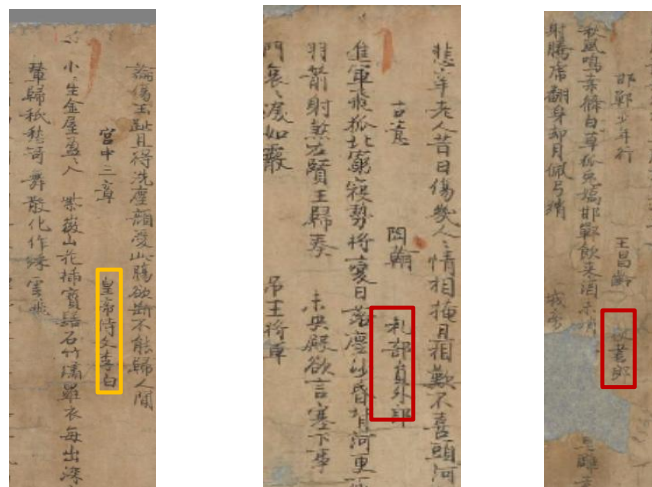 論傷玉趾且得洗塵顏愛此腸欲斷不能歸人間
宮中三章 皇帝侍文李白
小〻生金屋盈〻入紫薇山花插寶髻石竹繡羅衣每出深
輦歸祇愁歌舞散化作綵雲飛
悲羊老人昔日傷幾人〻情相掩且相歎不喜頭河
古意 陶翰 礼部員外郎
進軍飛狐北窮寇勢將變日落塵沙昏背河更
羽箭射煞左賢王歸奏 未央殿欲言塞下事
門哀〻淚如霰 吊王將軍
邯鄲少年行 王昌齡 校書郎
秋風鳴桑條白草狐兔驕邯鄲飲來酒未消
射騰虎翻身却月佩弓